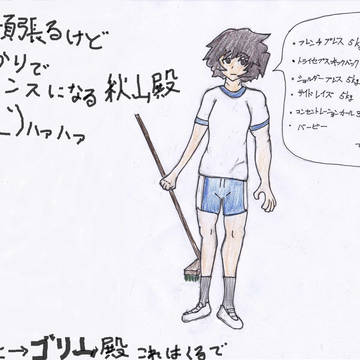 頑張るけど
かりで
ンスになる 秋山殿
ハァハァ
・フレンチプレス 5kg
・トライセプスキックバック
・ショルダープレス 5kg
・サイドレイズ 5kg
・コンセントレーションカール
・バーピー
で
→ゴリ山殿 これはくるで